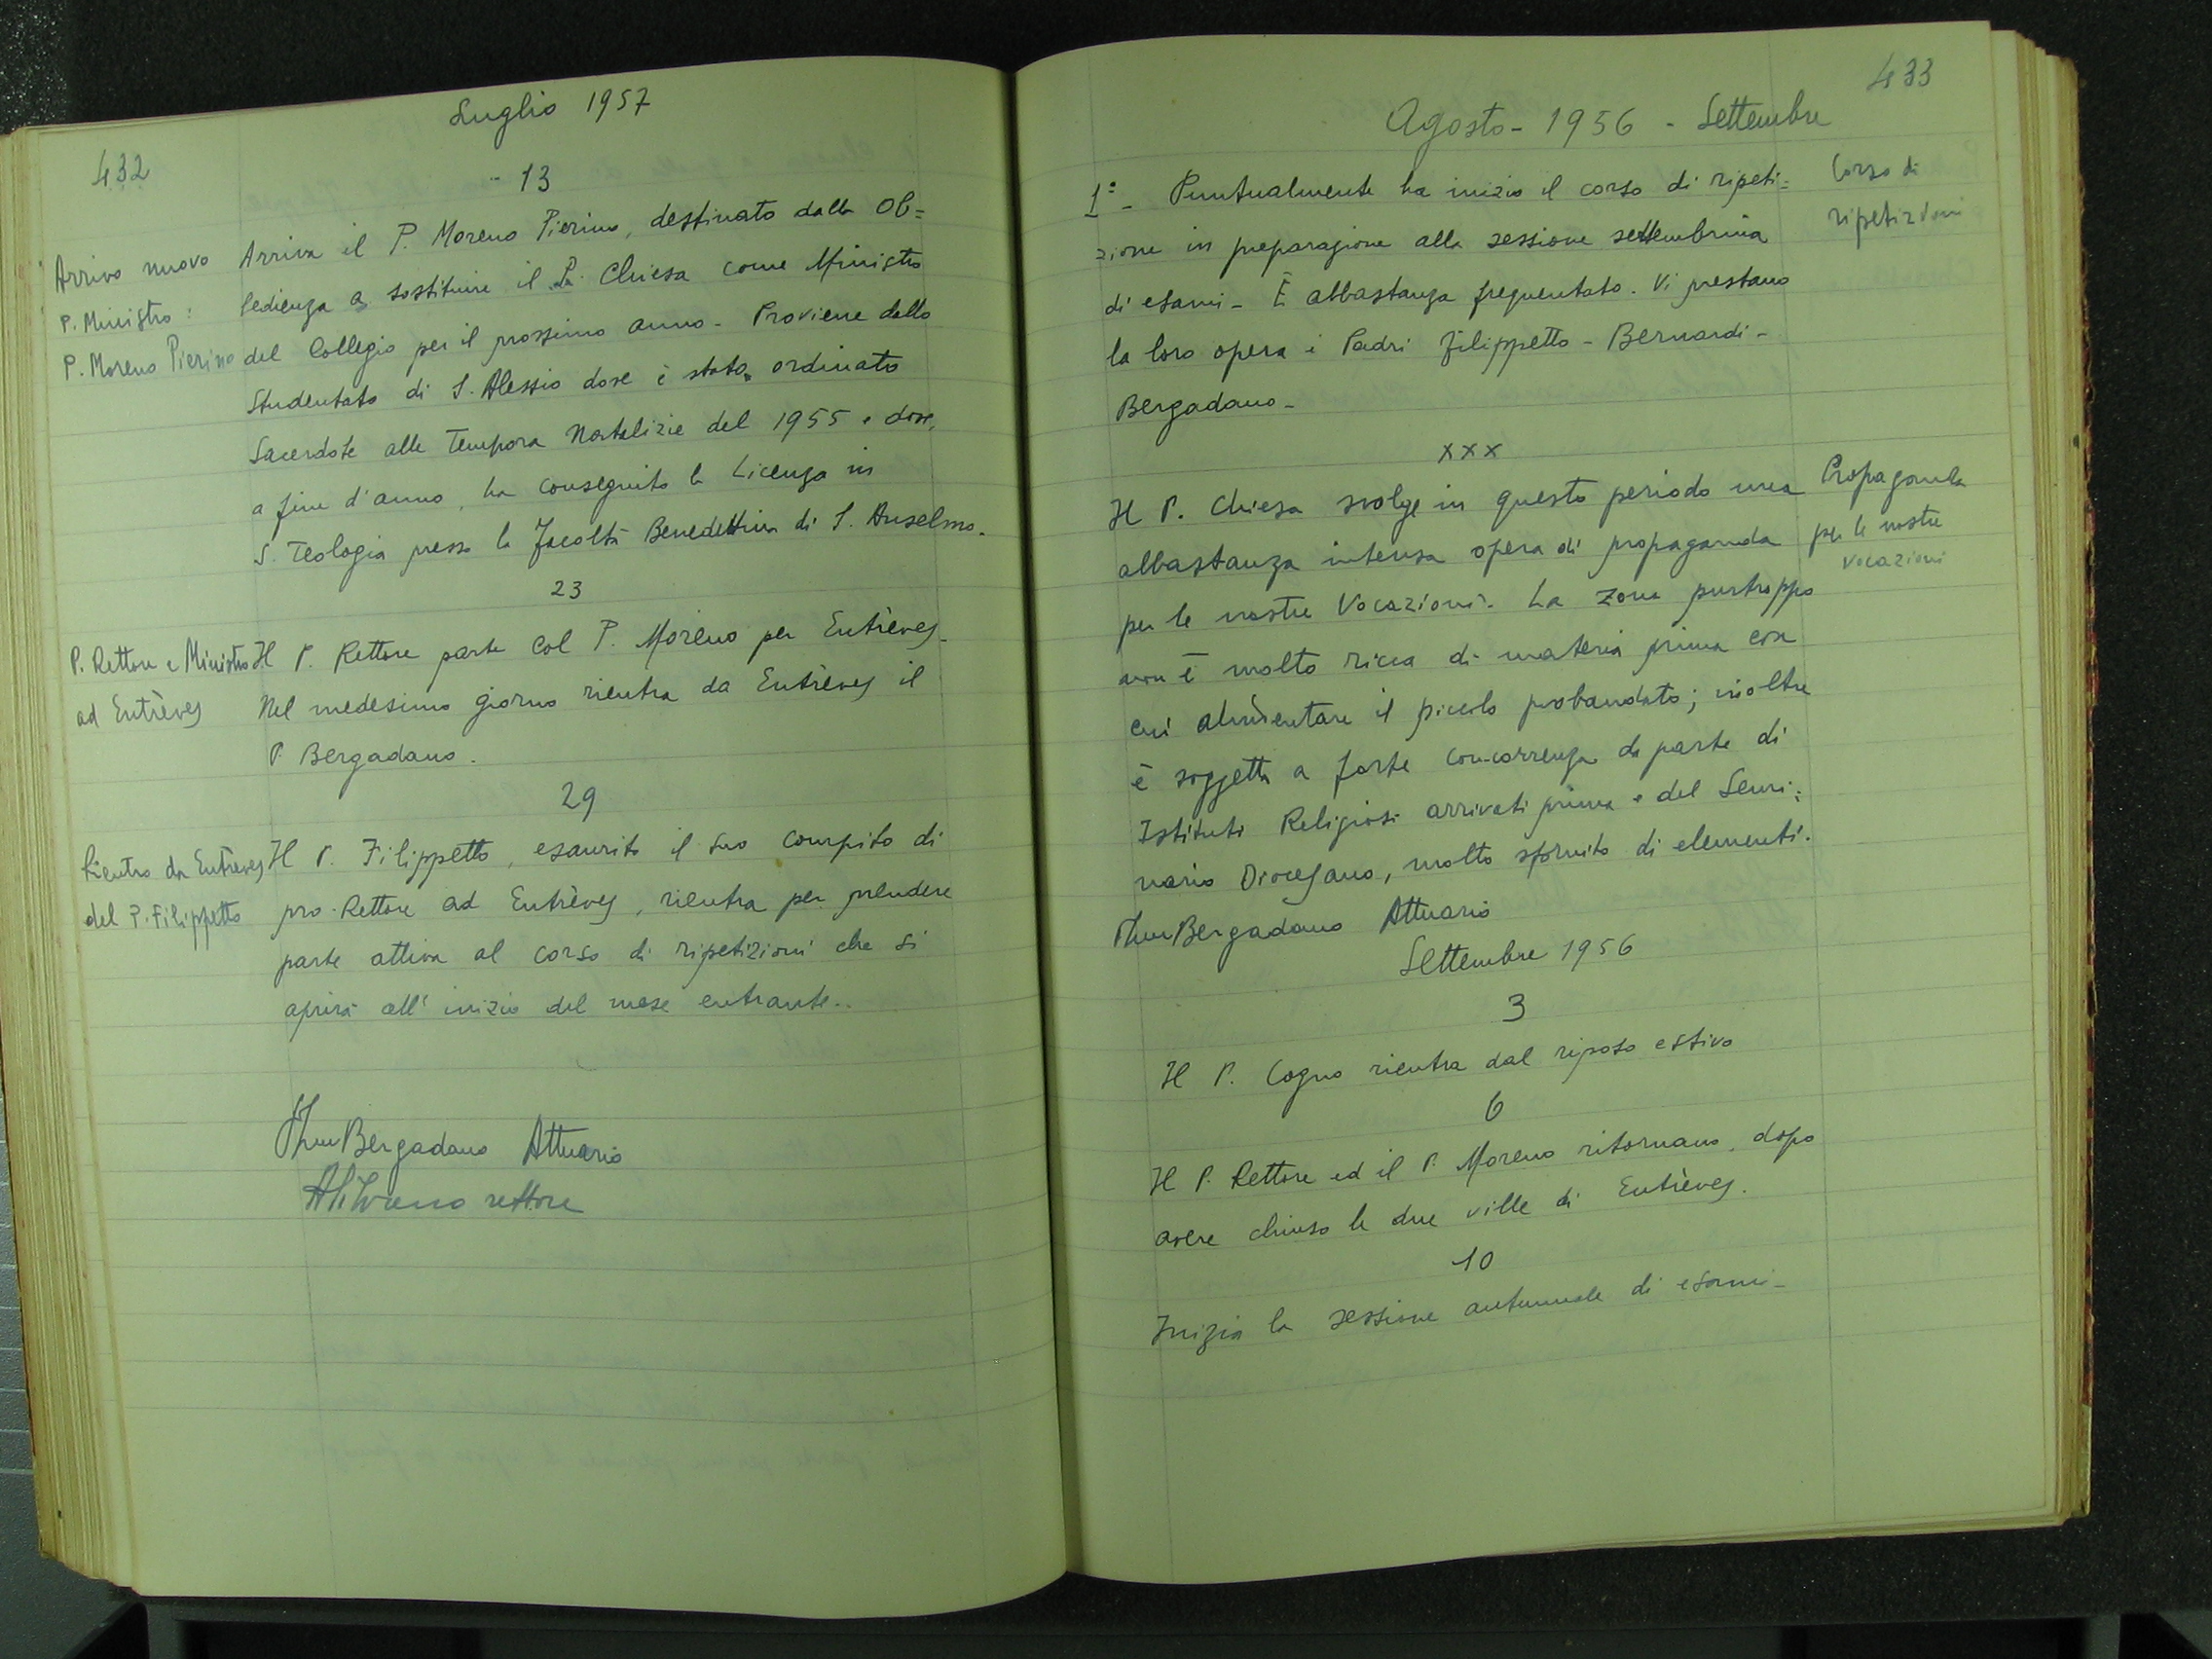 432
Luglio 1957
13
Arrivo nuovo
P. Ministro:
P. Moreno Pierino
Arriva il P. Moreno Pierino, destinato dalla Ob=
bedienza a sostituire il P. Chiesa come Ministro
del Collegio per il prossimo anno - Proviene dallo
Studentato di S. Alessio dove è stato ordinato
Sacerdote alle Tempora Natalizie del 1955 e dove,
a fine d'anno, ha conseguito la Licenza in
S. Teologia presso la Facoltà Benedettina di S. Anselmo.
23
P. Rettore e Ministro
ad Entrèves
Il P. Rettore parte col P. Moreno per Entrèves.
Nel medesimo giorno rientra da Entrèves il
P. Bergadano.
29
Rientro da Entrèves
del P. Filippetto
Il P. Filippetto, esaurito il suo compito di
pro-Rettore ad Entrèves, rientra per prendere
parte attiva al corso di ripetizioni che si
aprirà all'inizio del mese entrante..
Bergadano Attuario
rettore
433
Agosto - 1956 - Settembre
Corso di
ripetizioni
1° - Puntualmente ha inizio il corso di ripeti=
zione in preparazione alla sessione settembrina
di esami - È abbastanza frequentato. Vi prestano
la loro opera i Padri Filippetto - Bernardi -
Bergadano -
xxx
Propaganda
per le nostre
vocazioni
Il P. Chiesa svolge in questo periodo una
abbastanza intensa opera di propaganda
per le nostre Vocazioni. La zona purtroppo
non è molto ricca di materia prima con
cui alimentare il piccolo probandato; inoltre
è soggetta a forte concorrenza da parte di
Istituti Religiosi arrivati prima e del Semi=
nario Diocesano, molto sfornito di elementi.
Bergadano Attuario
Settembre 1956
3
Il P. Cogno rientra dal riposo estivo
6
Il P. Rettore ed il P. Moreno ritornano, dopo
avere chiuso le due ville di Entrèves.
10
Inizia la sessione autunnale di esami -